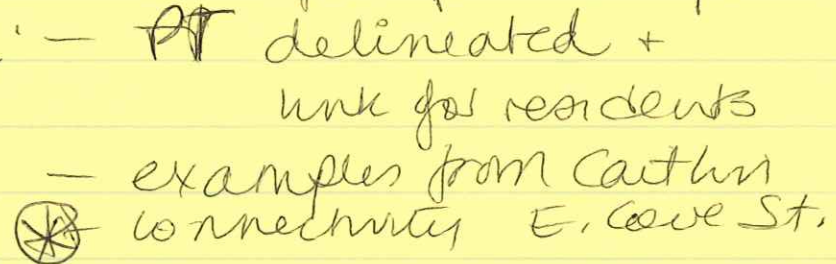 - PT delineated +
link for residents
- examples from Caitlin
connectivity E. Cove St.